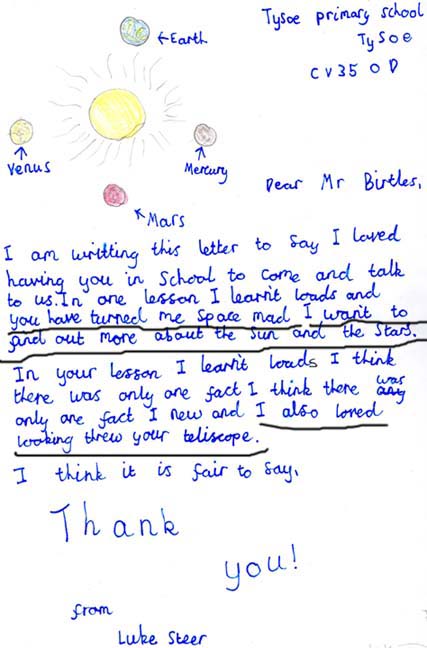 Tysoe primary school
Tysoe
CV35 0D
←Earth
Venus
Mercury
Mars
Dear Mr Birtles,
I am writting this letter to say I loved
having you in School to come and talk
to us. In one lesson I learn't loads and
you have turned me space mad I wan't to
find out more about the Sun and the Stars.
In your lesson I learn't loads I think
there was only one fact I think there was
only one fact I new and I also loved
looking threw your teliscope.
I think it is fair to say,
Thank
you!
from
Luke Steer